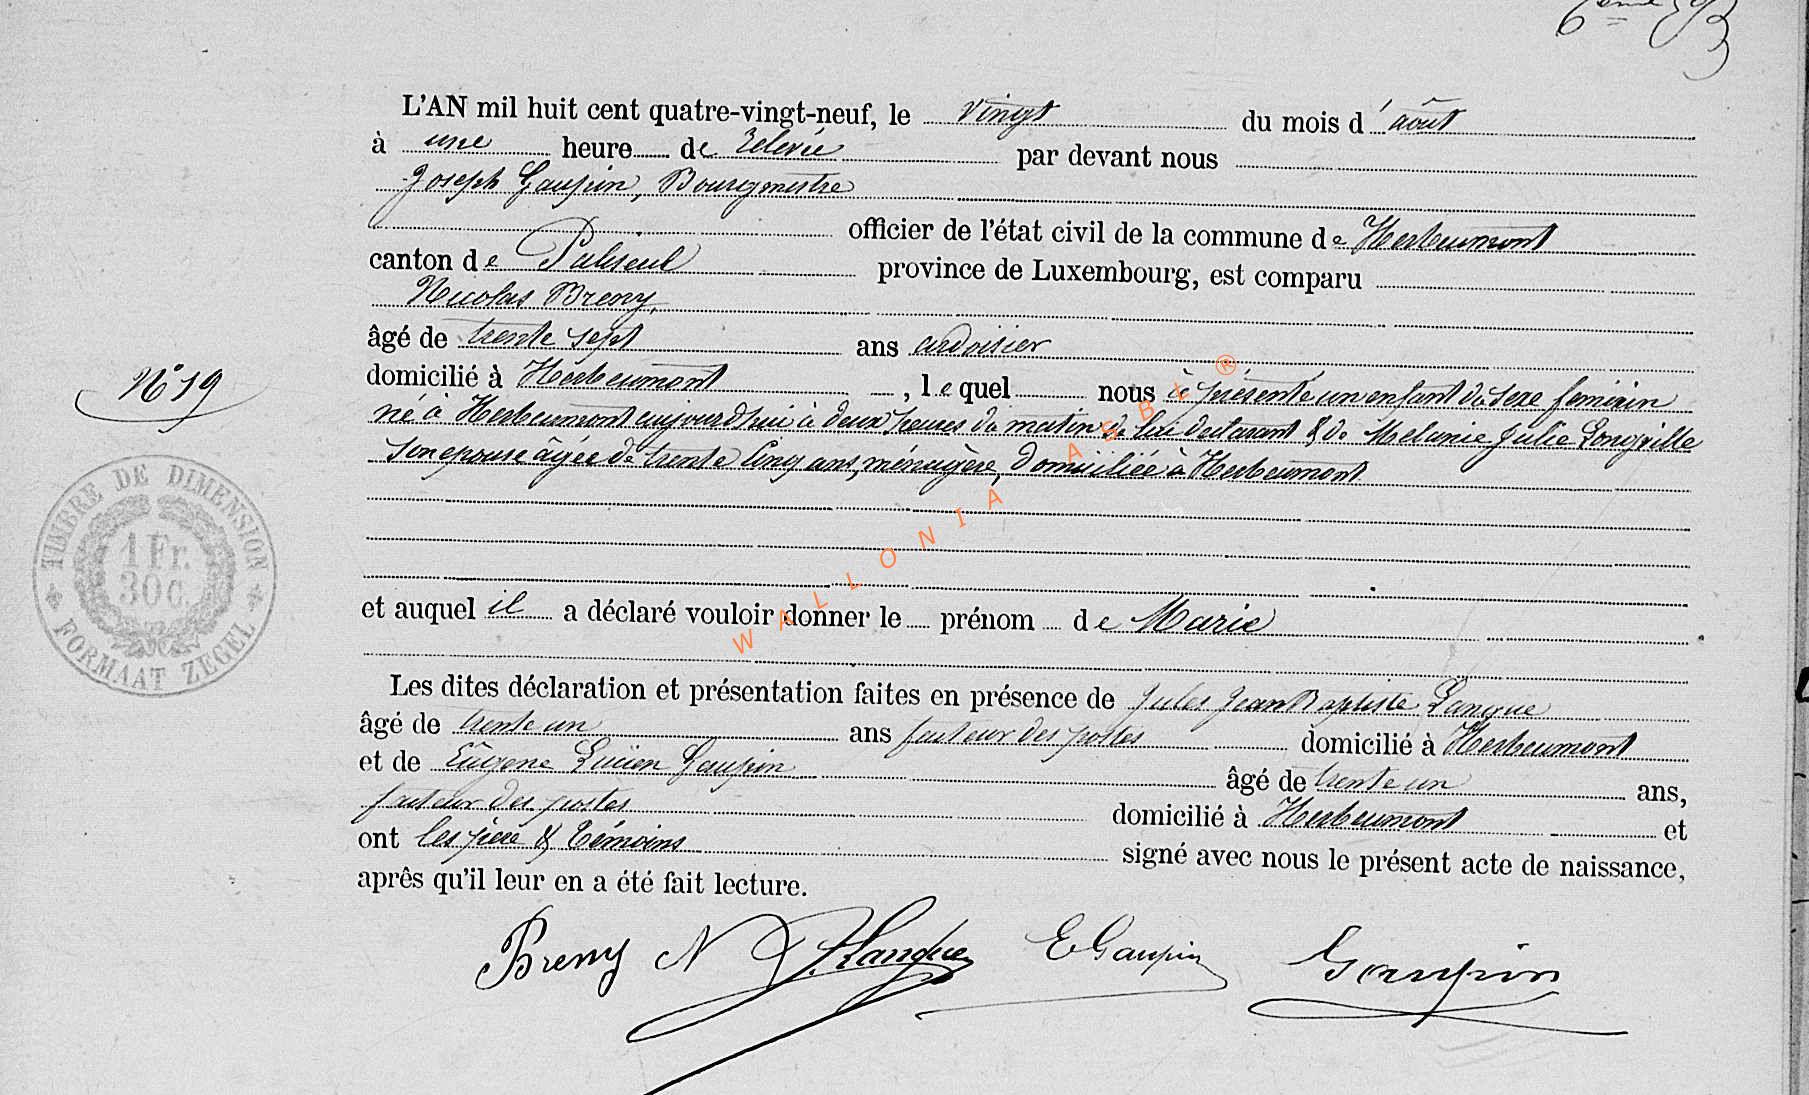 6ème B
L'AN mil huit cent quatre-vingt-neuf, le vingt du mois d'août
à une heure de relevée par devant nous
Joseph Gaupin, Bourgmestre
officier de l'état civil de la commune de Herbeumont
canton de Paliseul province de Luxembourg, est comparu
Nicolas Breny,
âgé de trente sept ans ardoisier
domicilié à Herbeumont, lequel nous à présenté un enfant du sexe féminin
N° 19
né à Herbeumont aujourd'hui à deux heures du matin de lui déclarant & de Mélanie Julie Longville
son épouse âgée de trente cinq ans, ménagère, domiciliée à Herbeumont
TIMBRE DE DIMENSION
1 Fr.
30 C.
FORMAAT ZEGEL
WALLONIA ASBL ®
et auquel il a déclaré vouloir donner le prénom de Marie
Les dites déclaration et présentation faites en présence de Jules Jean Baptiste Langue
âgé de trente un ans facteur des postes domicilié à Herbeumont
et de Eugène Lucien Gaupin âgé de trente un ans,
facteur des postes domicilié à Herbeumont et
ont les père & témoins signé avec nous le présent acte de naissance,
après qu'il leur en a été fait lecture.
Breny N J. Langue E Gaupin Gaupin